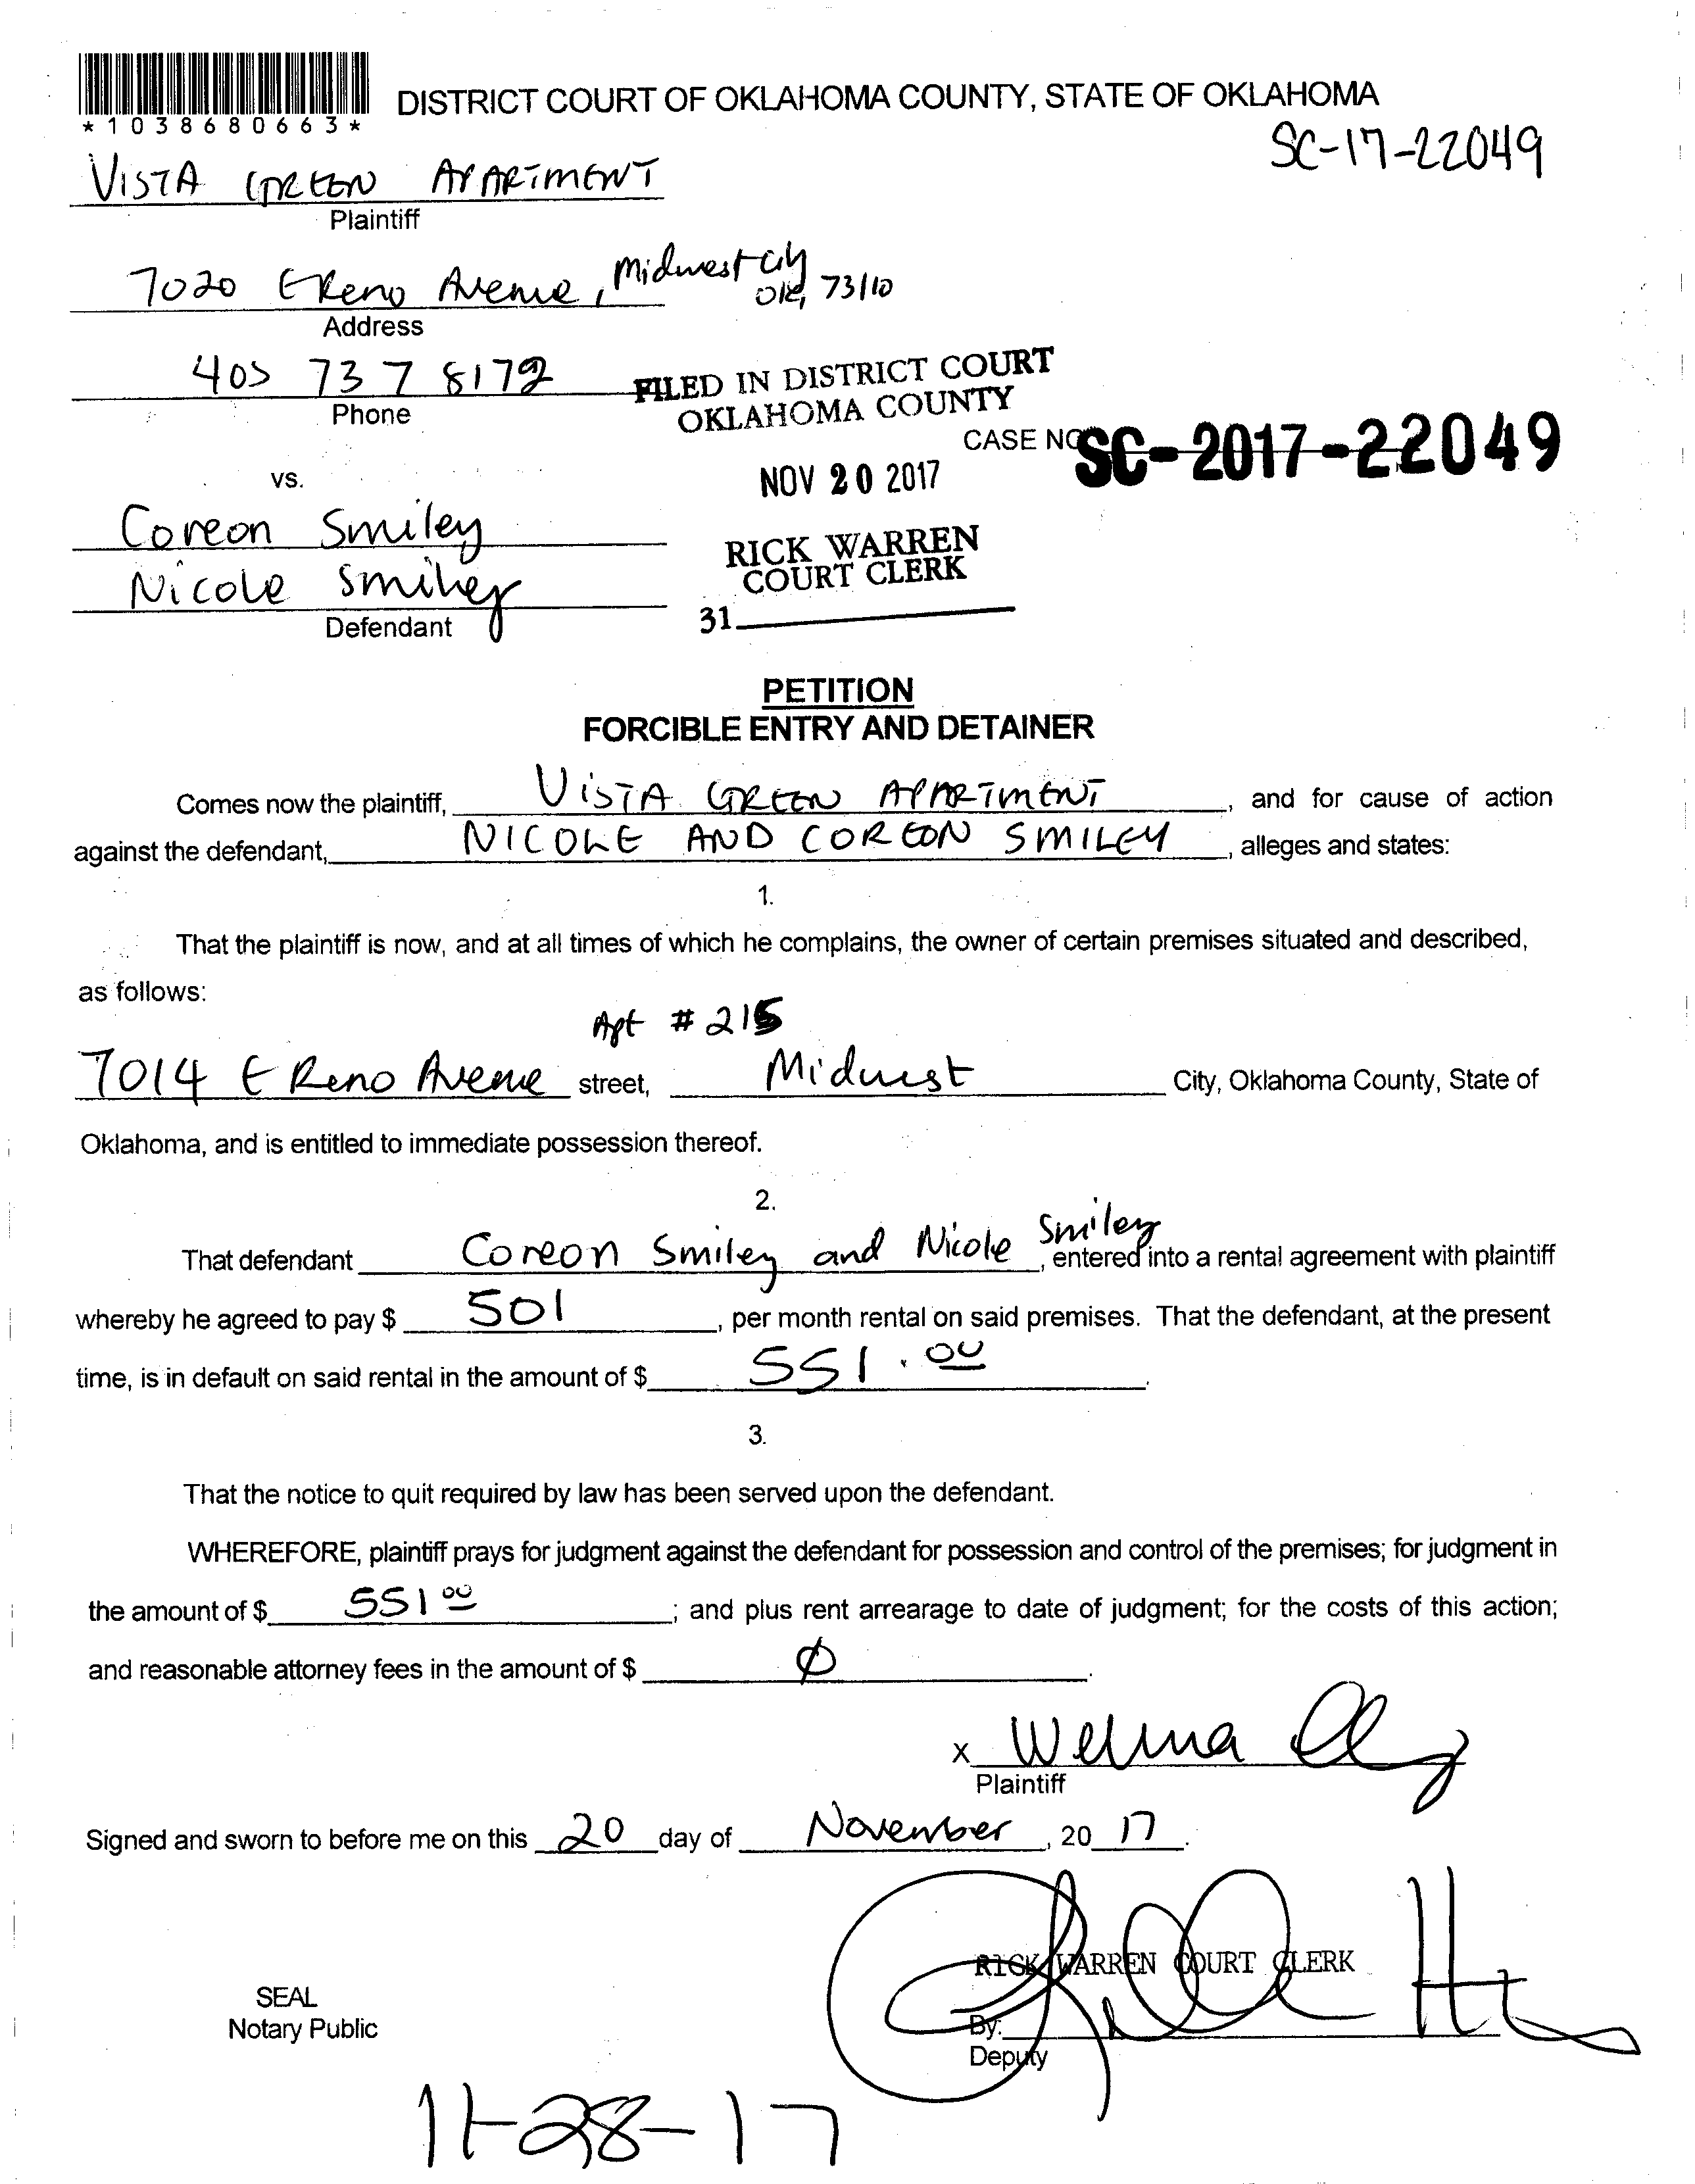 *1038680663*
DISTRICT COURT OF OKLAHOMA COUNTY, STATE OF OKLAHOMA
SC-17-22049
VISTA GREEN APARTMENT
Plaintiff
7020 E Reno Avenue, Midwest City
Ok, 73110
Address
405 737 8172
Phone
FILED IN DISTRICT COURT
OKLAHOMA COUNTY
CASE NO SC-2017-22049
NOV 20 2017
vs.
Coreon Smiley
RICK WARREN
COURT CLERK
Nicole Smiley
31
Defendant
PETITION
FORCIBLE ENTRY AND DETAINER
Comes now the plaintiff, VISTA GREEN APARTMENT, and for cause of action
against the defendant, NICOLE AND COREON SMILEY, alleges and states:
1.
That the plaintiff is now, and at all times of which he complains, the owner of certain premises situated and described,
as follows:
Apt # 215
7014 E Reno Avenue street, Midwest City, Oklahoma County, State of
Oklahoma, and is entitled to immediate possession thereof.
2.
That defendant Coreon Smiley and Nicole Smiley, entered into a rental agreement with plaintiff
whereby he agreed to pay $ 501, per month rental on said premises. That the defendant, at the present
time, is in default on said rental in the amount of $ 551.00.
3.
That the notice to quit required by law has been served upon the defendant.
WHEREFORE, plaintiff prays for judgment against the defendant for possession and control of the premises; for judgment in
the amount of $ 551 00; and plus rent arrearage to date of judgment; for the costs of this action;
and reasonable attorney fees in the amount of $ Ø.
x Welma
Plaintiff
Signed and sworn to before me on this 20 day of November, 20 17.
RICK WARREN COURT CLERK
SEAL
Notary Public
By:
Deputy
11-28-17